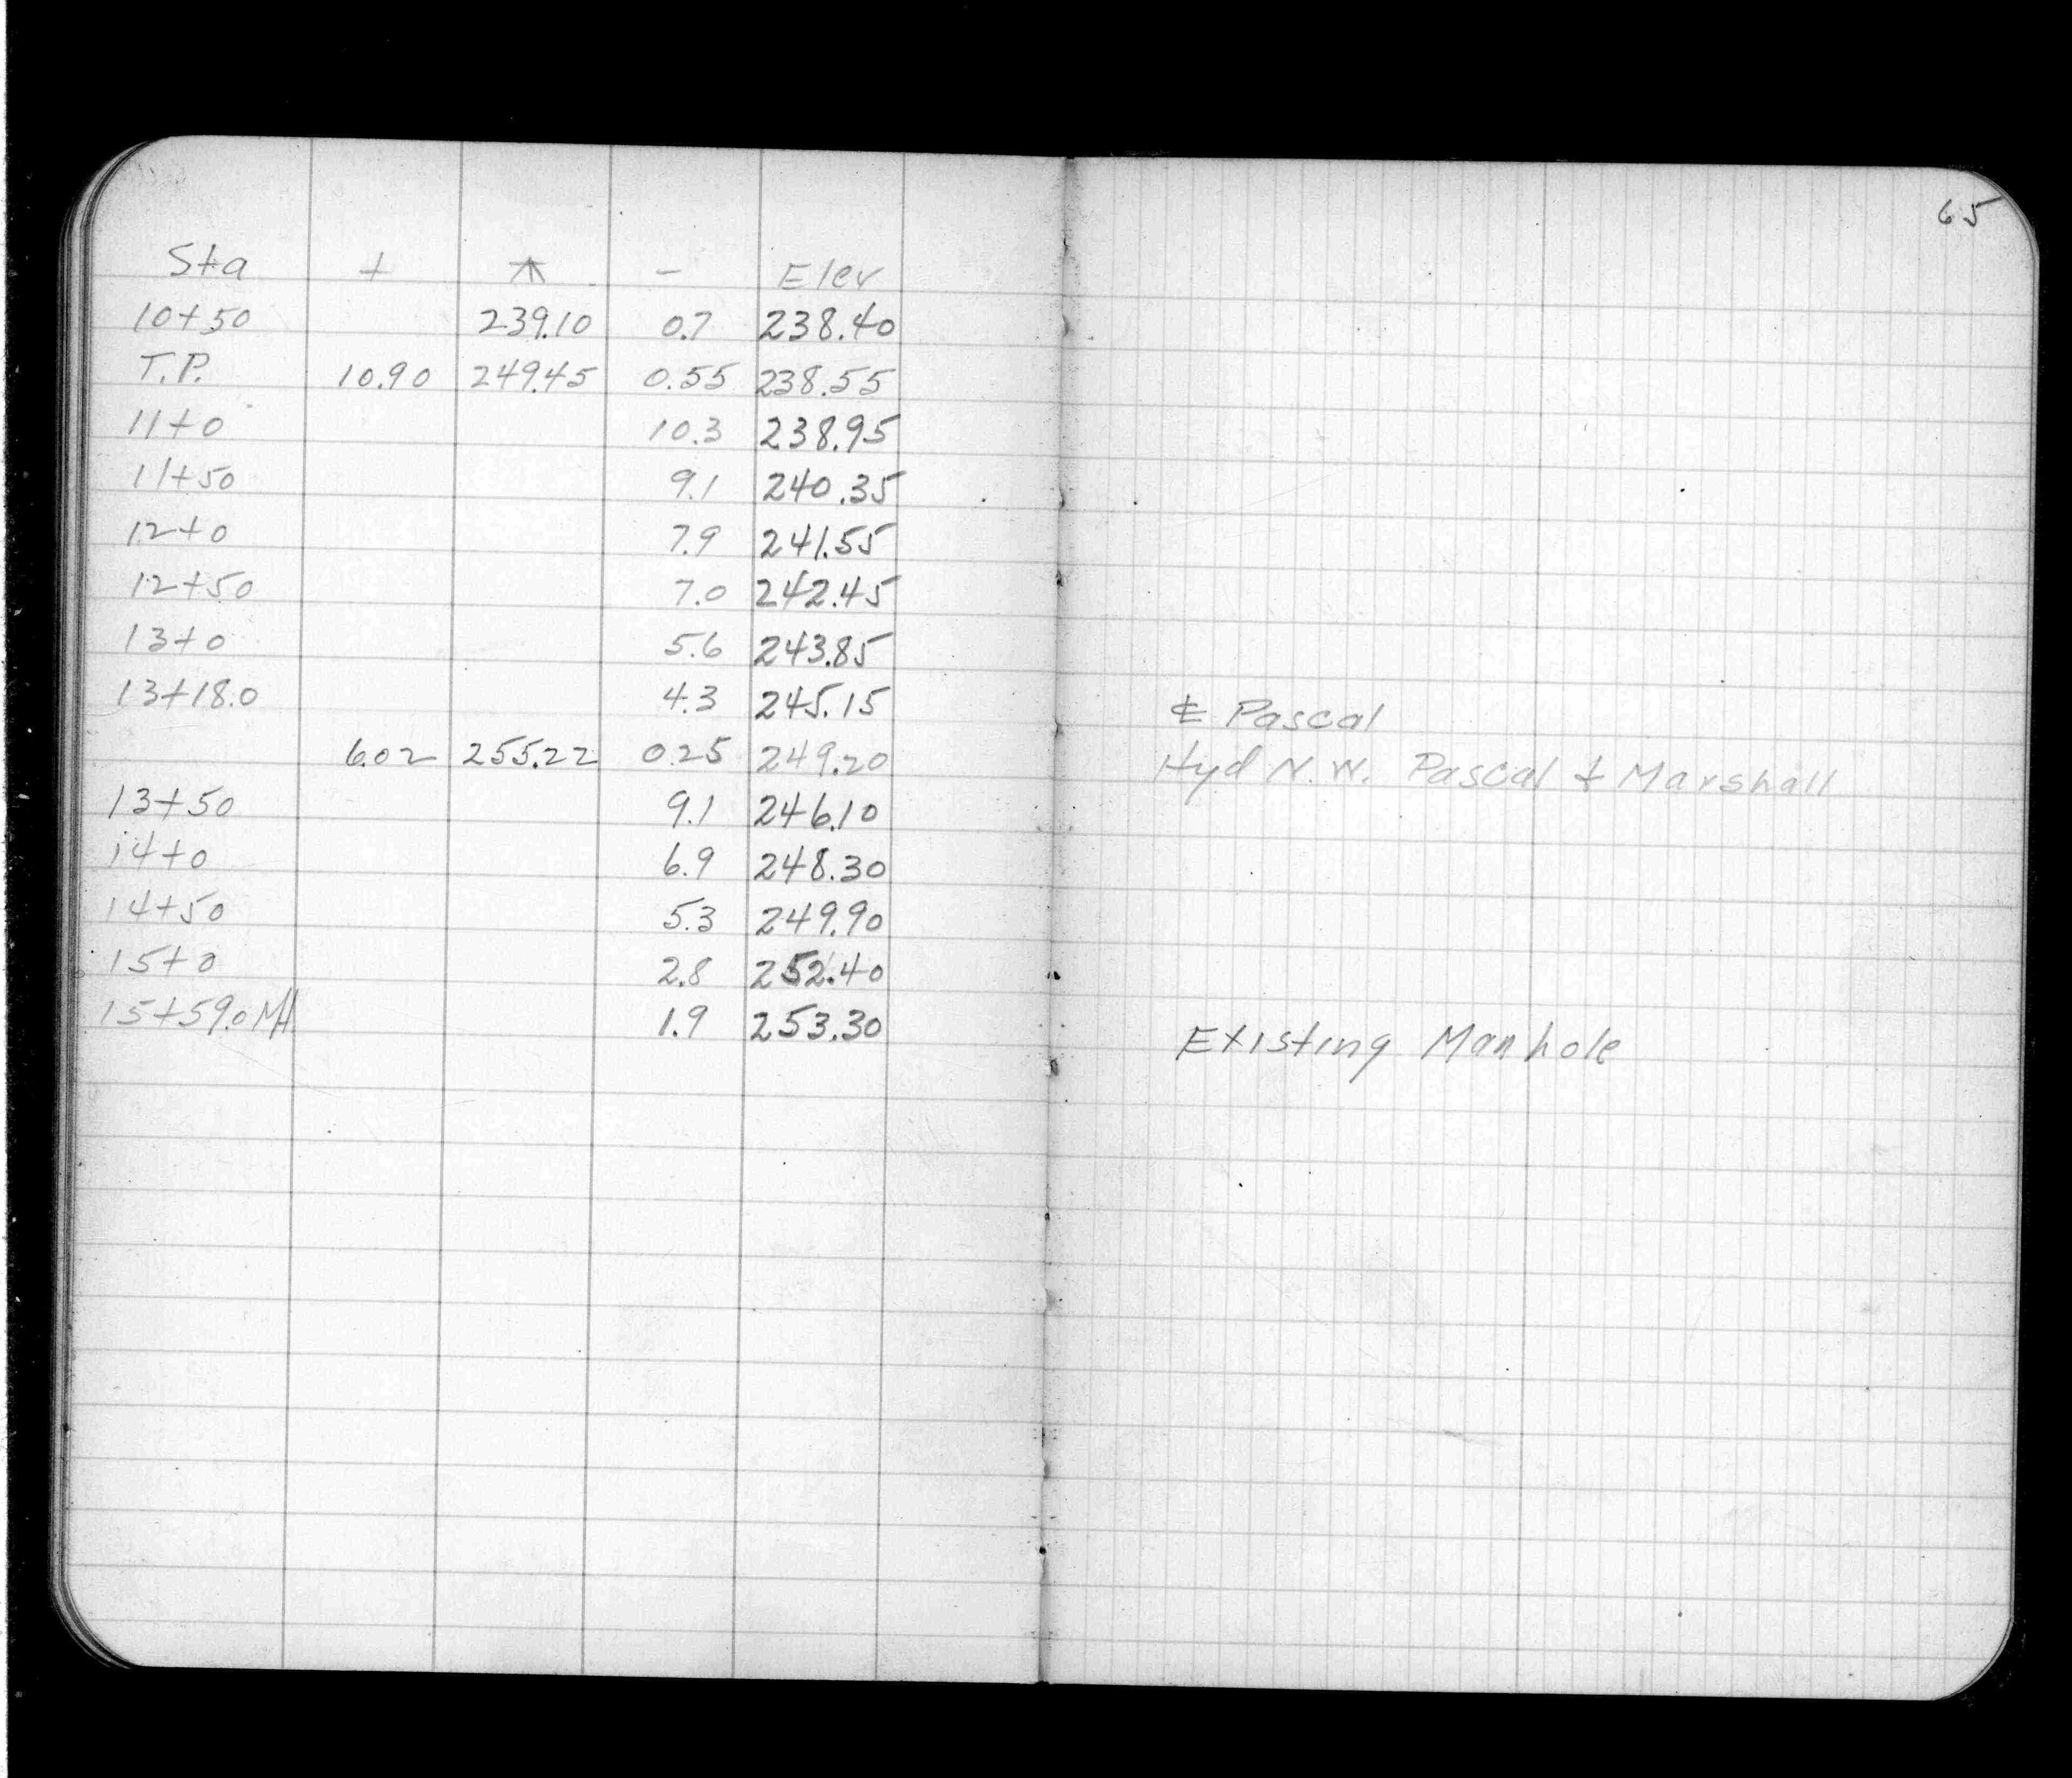 65
Sta + ⊼ - Elev
10+50 239.10 0.7 238.40
T.P. 10.90 249.45 0.55 238.55
11+0 10.3 238.95
11+50 9.1 240.35
12+0 7.9 241.55
12+50 7.0 242.45
13+0 5.6 243.85
13+18.0 4.3 245.15 ℄ Pascal
6.02 255.22 0.25 249.20 Hyd N.W. Pascal + Marshall
13+50 9.1 246.10
14+0 6.9 248.30
14+50 5.3 249.90
15+0 2.8 252.40
15+59.0 MH 1.9 253.30 Existing Manhole